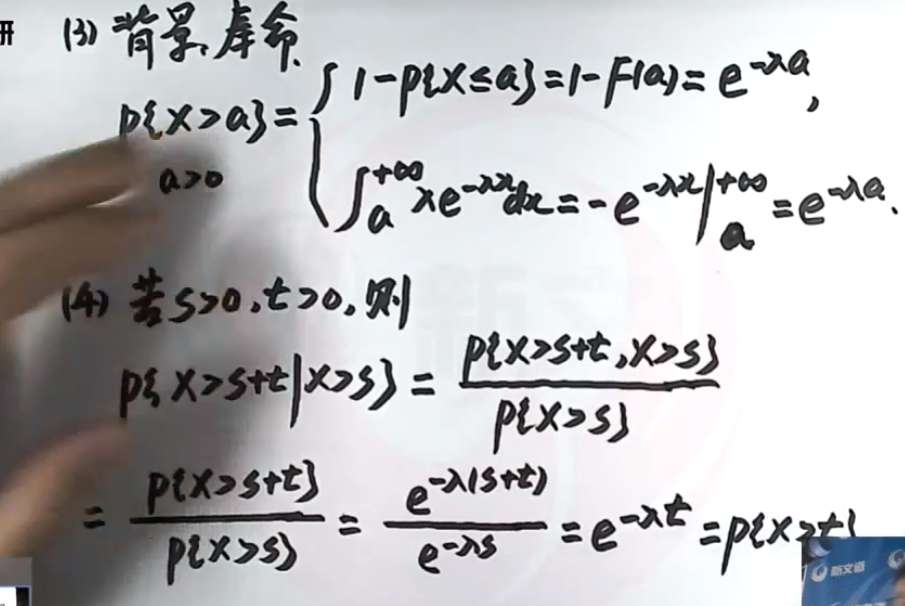 研
(3) 背景:寿命.
P{X>a}= { 1-P{X≤a}=1-F(a)=e^{-λa},
a>0
∫_a^{+∞} λe^{-λx}dx=-e^{-λx}|_a^{+∞}=e^{-λa}.
(4) 若s>0,t>0,则
P{X>s+t|X>s}=\frac{P{X>s+t,X>s}}{P{X>s}}
=\frac{P{X>s+t}}{P{X>s}}=\frac{e^{-λ(s+t)}}{e^{-λs}}=e^{-λt}=P{X>t}
新文道